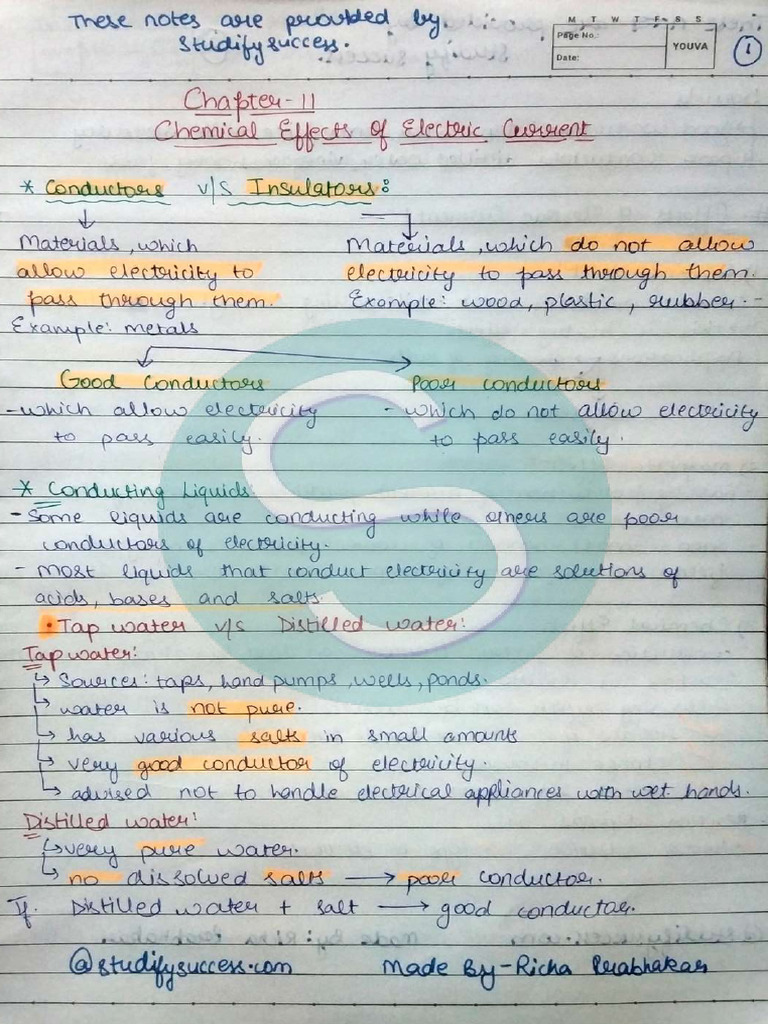 These notes are provided by
Studifysuccess.
M T W T F S S
Page No.:
Date:
YOUVA
1
Chapter-11
Chemical Effects of Electric Current
* Conductors v/s Insulators:
Materials, which
allow electricity to
pass through them.
Example: metals
Materials, which do not allow
electricity to pass through them.
Example: wood, plastic, rubber.
Good Conductors
- which allow electricity
to pass easily.
Poor conductors
- which do not allow electricity
to pass easily.
* Conducting Liquids
- Some liquids are conducting while others are poor
conductors of electricity.
- Most liquids that conduct electricity are solutions of
acids, bases and salts.
• Tap water v/s Distilled water:
Tap water:
↳ Sources: taps, hand pumps, wells, ponds.
↳ water is not pure.
↳ has various salts in small amounts
↳ very good conductor of electricity.
↳ advised not to handle electrical appliances with wet hands.
Distilled water:
↳ very pure water.
↳ no dissolved salts → poor conductor.
If. Distilled water + salt → good conductor.
@studifysuccess.com Made By-Richa Prabhakar